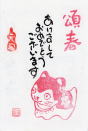 頌春
あけまして
おめでとう
ございます